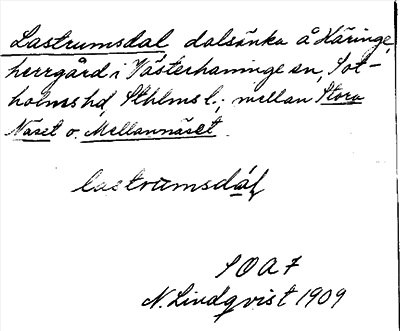 Lastrumsdal dalsänka å Häringe,
herrgård i Västerhaninge sn, Sot-
holms hd, Sthlms l.; mellan Stora
Näset o. Mellannäset.
lastrumsdáḷ
SOA 7
N. Lindqvist 1909